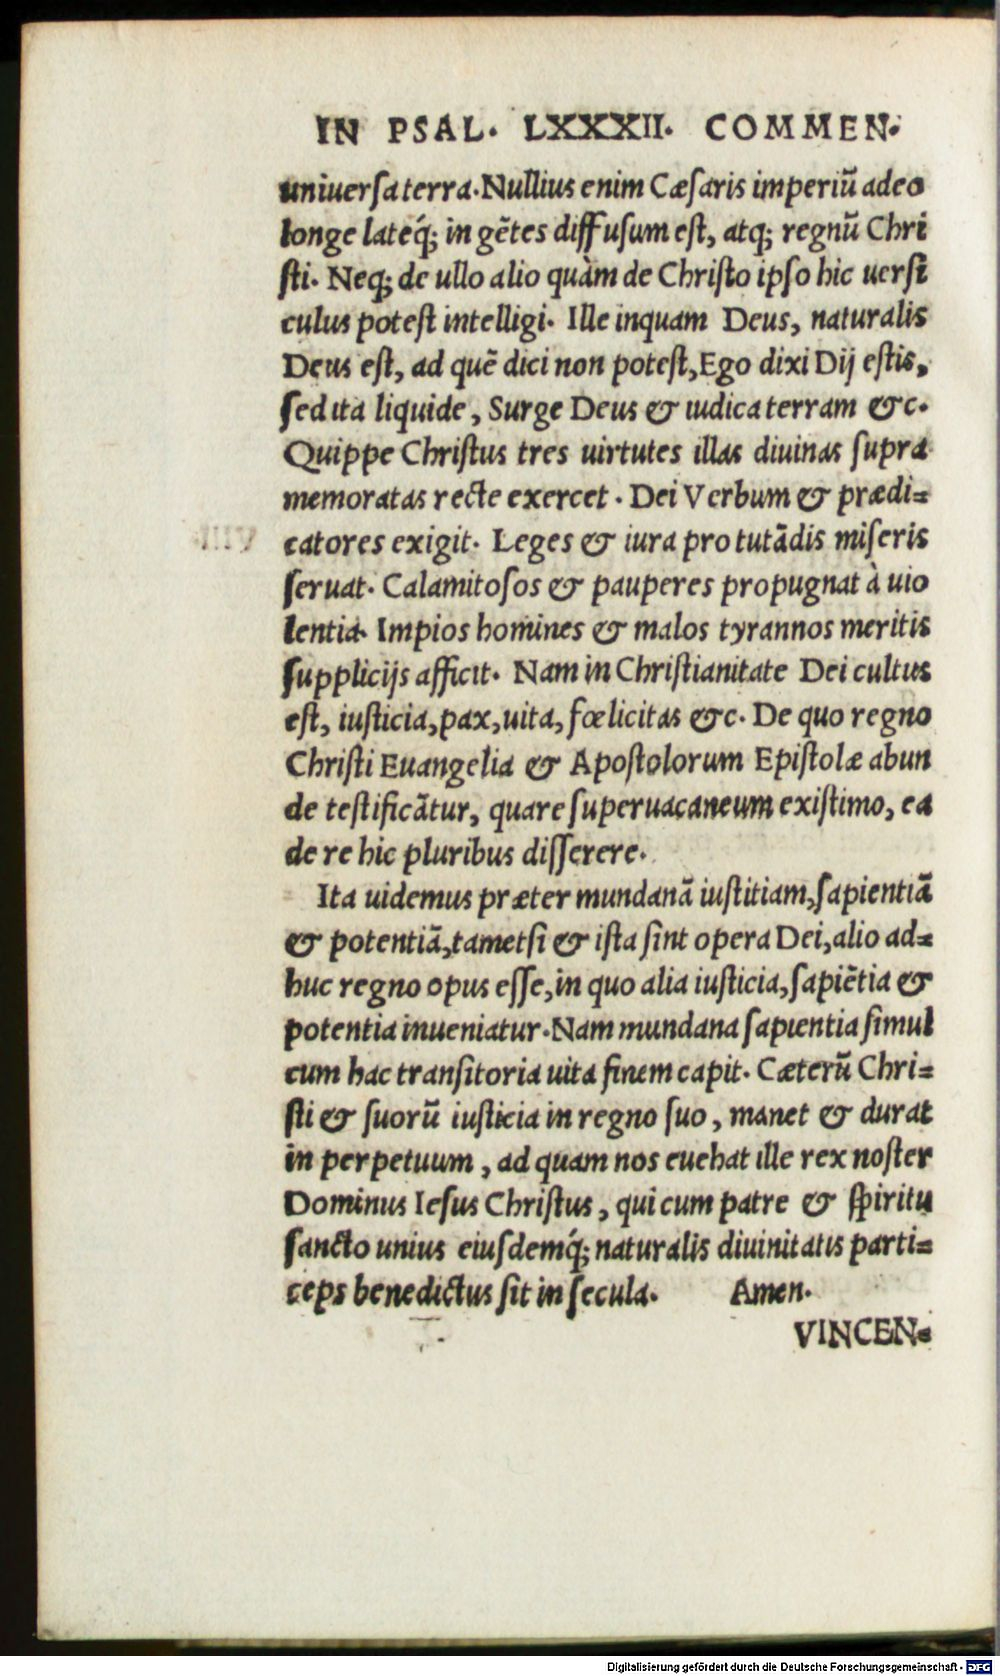 IN PSAL. LXXXII. COMMEN.
uniuersa terra. Nullius enim Cæsaris imperiũ adeo
longe lateq́; in gẽtes diffusum est, atq; regnũ Chri
sti. Neq; de ullo alio quàm de Christo ipso hic uersi
culus potest intelligi. Ille inquam Deus, naturalis
Deus est, ad quẽ dici non potest, Ego dixi Dij estis,
sed ita liquide, Surge Deus & iudica terram &c.
Quippe Christus tres uirtutes illas diuinas supra
memoratas recte exercet. Dei Verbum & prædi=
catores exigit. Leges & iura pro tutãdis miseris
seruat. Calamitosos & pauperes propugnat à uio
lentia. Impios homines & malos tyrannos meritis
supplicijs afficit. Nam in Christianitate Dei cultus
est, iusticia, pax, uita, fœlicitas &c. De quo regno
Christi Euangelia & Apostolorum Epistolæ abun
de testificãtur, quare superuacaneum existimo, ea
de re hic pluribus disserere.
Ita uidemus præter mundanã iustitiam, sapientiã
& potentiã, tametsi & ista sint opera Dei, alio ad=
huc regno opus esse, in quo alia iusticia, sapiẽtia &
potentia inueniatur. Nam mundana sapientia simul
cum hac transitoria uita finem capit. Cæterũ Chri=
sti & suorũ iusticia in regno suo, manet & durat
in perpetuum, ad quam nos euehat ille rex noster
Dominus Iesus Christus, qui cum patre & spiritu
sancto unius eiusdemq́; naturalis diuinitatis parti=
ceps benedictus sit in secula. Amen.
VINCEN=
Digitalisierung gefördert durch die Deutsche Forschungsgemeinschaft - DFG